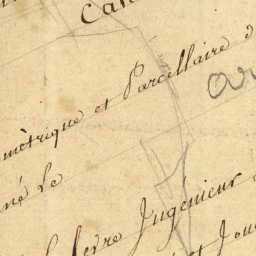 Can
métrique et Parcellaire d
né le
lefvre Ingénieur
et Jou